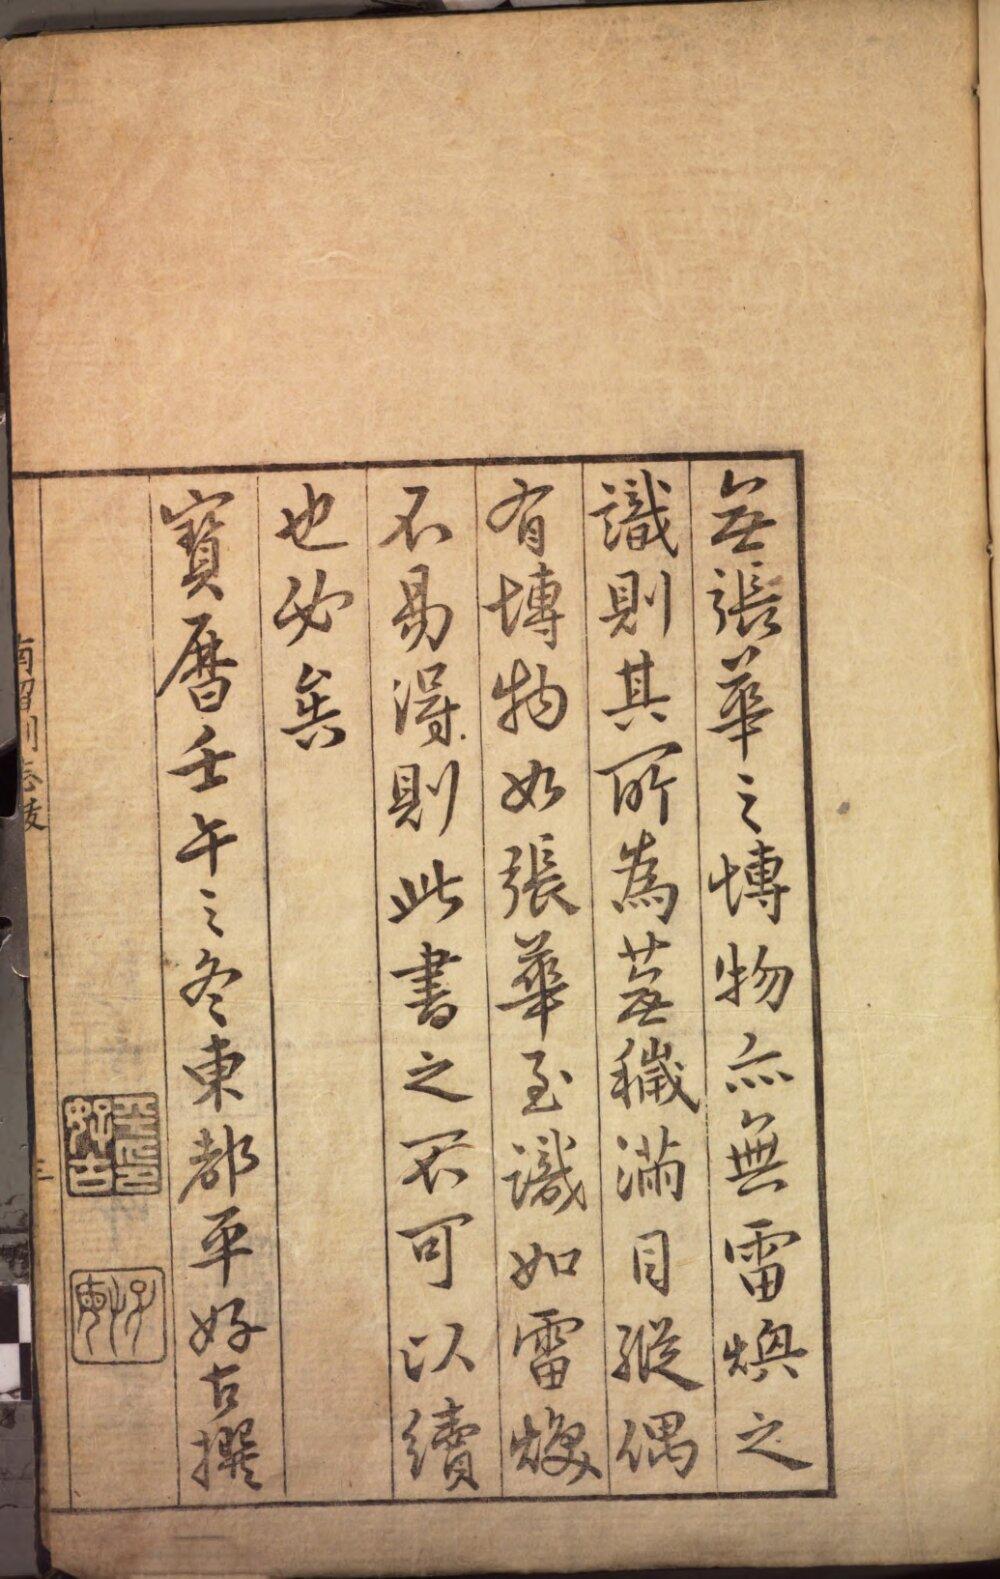 無張華之博物亦無雷煥之
識則其所為蕪穢滿目縱偶
有博物如張華至識如雷煥
不易得則此書之不可以續
也必矣
寶曆壬午之冬東都平好古撰